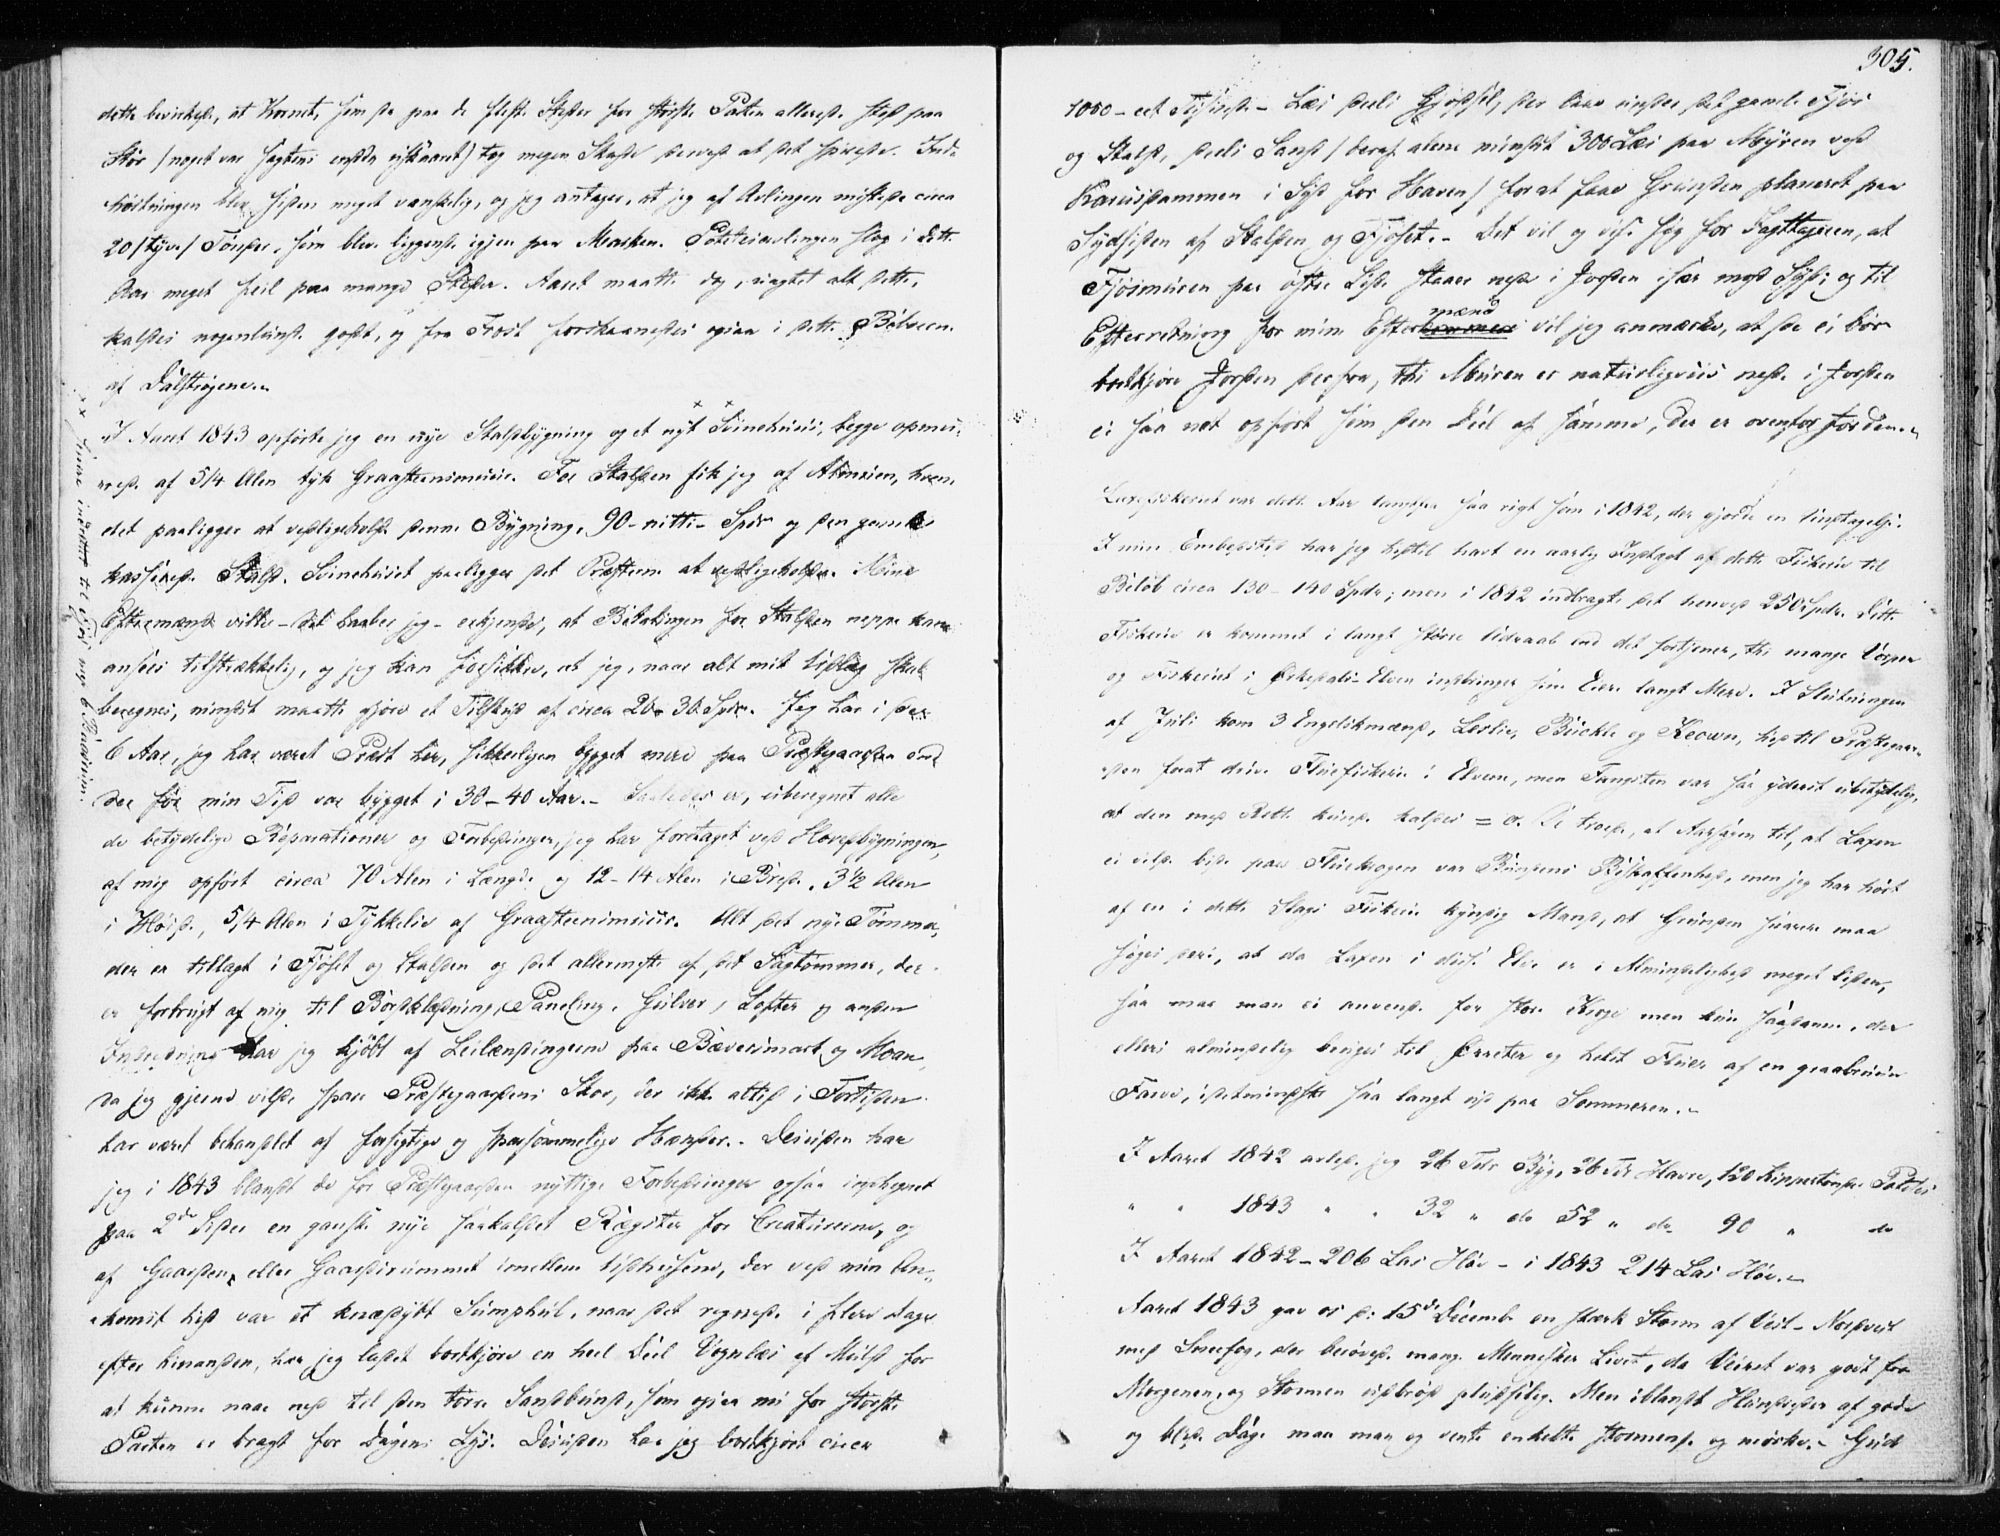 dette bevirkede, at Kornet, som da paa de fleste Steder for største Parten allerede stod paa
Stør /noget var sagtens endda uskaaret/ tog megen Skade derved at det spirede. Ind-
høstningen blev siden meget vanskelig, og jeg antager, at jeg af Avlingen mistede circa
20 /tyve/ Tønder, som blev liggende igjen paa Marken. Potetesavlingen slog i dette
Aar meget feil paa mange Steder. Aaret maatte dog, uagtet alt dette,
kaldes nogenlunde godt, og fra Frost forskaanedes ogsaa i dette
af Dalstrøgene.
I Aaret 1843 opførte jeg en nye Staldbygning og et nyt ×× Svinehuus, begge opmu-
rede af 5/4 Alen tyk Graasteensmuur. For Stalden fik jeg af Almuen, hvem
det paaligger at vedligeholde denne Bygning, 90 - nitti - Spdr og den gamle
kasserede Stald. Svinehuset paaligger det Præsten at vedligeholde. Mine
Eftermænd ville - det haaber jeg - erkjende, at Betalingen for Stalden neppe kan
ansees tilstrækkelig, og jeg kan forsikkre, at jeg, naar alt mit Udlæg skal
beregnes, mindst maatte gjøre et Tilskud af circa 20 - 30 Spdr. Jeg har i de
6 Aar, jeg har været Præst her, sikkerligen bygget mere paa Præstegaarden end
der før min Tid var bygget i 30 - 40 Aar. - Saaledes er, uberegnet alle
de betydelige Reparationer og Forbedringer, jeg har foretaget ved Hovedbygningen,
af mig opført circa 70 Alen i Længde og 12 - 14 Alen i Brede, 3½ Alen
i Høide, 5/4 Alen i Tykkelse af Graasteensmuur. Alt det nye Tømmer,
der er tillagt i Fjøset og Stalden og det allermeste af det Sagtømmer, der
er forbrugt af mig til Bordklædning, Paneling, Gulver, Lofter og anden
Indredning har jeg kjøbt af Leilændingerne paa Bæversmark og Moan,
da jeg gjerne vilde spare Præstegaardens Skov, der ikke altid i Fortiden
har været behandlet af forsigtige og sparsommelige Hænder. - Desuden har
jeg i 1843 blandt de for Præstegaarden nyttige Forbedringer ogsaa indhegnet
paa 2de Sider en ganske nye saakaldet Rægster for Creaturerne, og
af Gaarden, eller Gaardsrummet imellem Udhusene, der ved min An-
komst hid var et knædybt Sumphul, naar det regnede i flere Dage
efter hinanden, har jeg ladet bortkjøre en heel Deel Vognlæs af Muld for
at kunne naae ned til den tørre Sandbund, som ogsaa nu for største
Parten er bragt for Dagens Lys. Desuden har jeg bortkjørt circa
×× Svine indrettet til
305.
1000 - eet Tusinde - Læs deels Gjødsel, der laae under det gamle Fjøs
og Stald, deels Sand /deraf alene mindst 300 Læs paa Myren ved
Karusdammen i Syd for Haven/ for at faae Grunden planeret paa
Sydsiden af Stalden og Fjøset. - Det vil og vise sig for Iagttageren, at
Fjøsmuren paa østre Side staaer ned i Jorden især mod Syd; og til
Efterretning for mine Efterkommere mænd vil jeg anmærke, at de ei bør
bortkjøre Jorden derfra, thi Muren er naturligviis nede i Jorden
ei saa net opført som den Deel af samme, der er ovenfor Jorden.
Laxefiskeriet var dette Aar langtfra saa rigt som i 1842, der gjorde en Undtagelse.
I min Embedstid har jeg hidtil havt en aarlig Indtægt af dette Fiskerie til
Beløb circa 130 - 140 Spdr; men i 1842 indbragte det henved 250 Spdr. Dette
Fiskerie er kommet i langt større Udraab end det fortjener, thi mange
og Fiskeriet i Ørkedals Elven indbringer sine Eiere langt Mere. I Slutningen
af Juli kom 3 Engelskmænd, Leslie, Buckle og Keown, hid til Præstegaar-
den forat drive Fluefiskerie i Elven, men Fangsten var saa yderst ubetydelig,
at den med Rette kunde kaldes = 0. De troede, at Aarsagen til, at Laxen
ei vilde bide paa Fluekrogen var Bundens Beskaffenhed, men jeg har hørt
af en i dette Slags Fiskerie kyndig Mand, at Grunden snarere maa
søges deri, at da Laxen i disse Elve er i Almindelighed meget liden,
saa maa man ei anvende for store Kroge men kun saadanne, der
ellers almindelig bruges til Ørreter og helst Fluer af en graabruun
Farve, idetmindste saa langt ud paa Sommeren. -
I Aaret 1842 avlede jeg 26 Tdr Byg, 26 Tdr Havre, 120 Kippertønder Poteter
" " 1843 " " 32 " do 52 " do 90 " do
I Aaret 1842 - 206 Læs Høe - i 1843 214 Læs Høe. -
Aaret 1843 gav os d: 15de Decemb. en stærk Storm af Vest - Nordvest
med Sneefog, der berøvede mange Mennesker Livet, da Veiret var godt fra
Morgenen, og Stormen udbrød pludselig. Men iblandt Hundreder af gode
og blide Dage maa man og vente enkelte stormende og mørke. - Gud